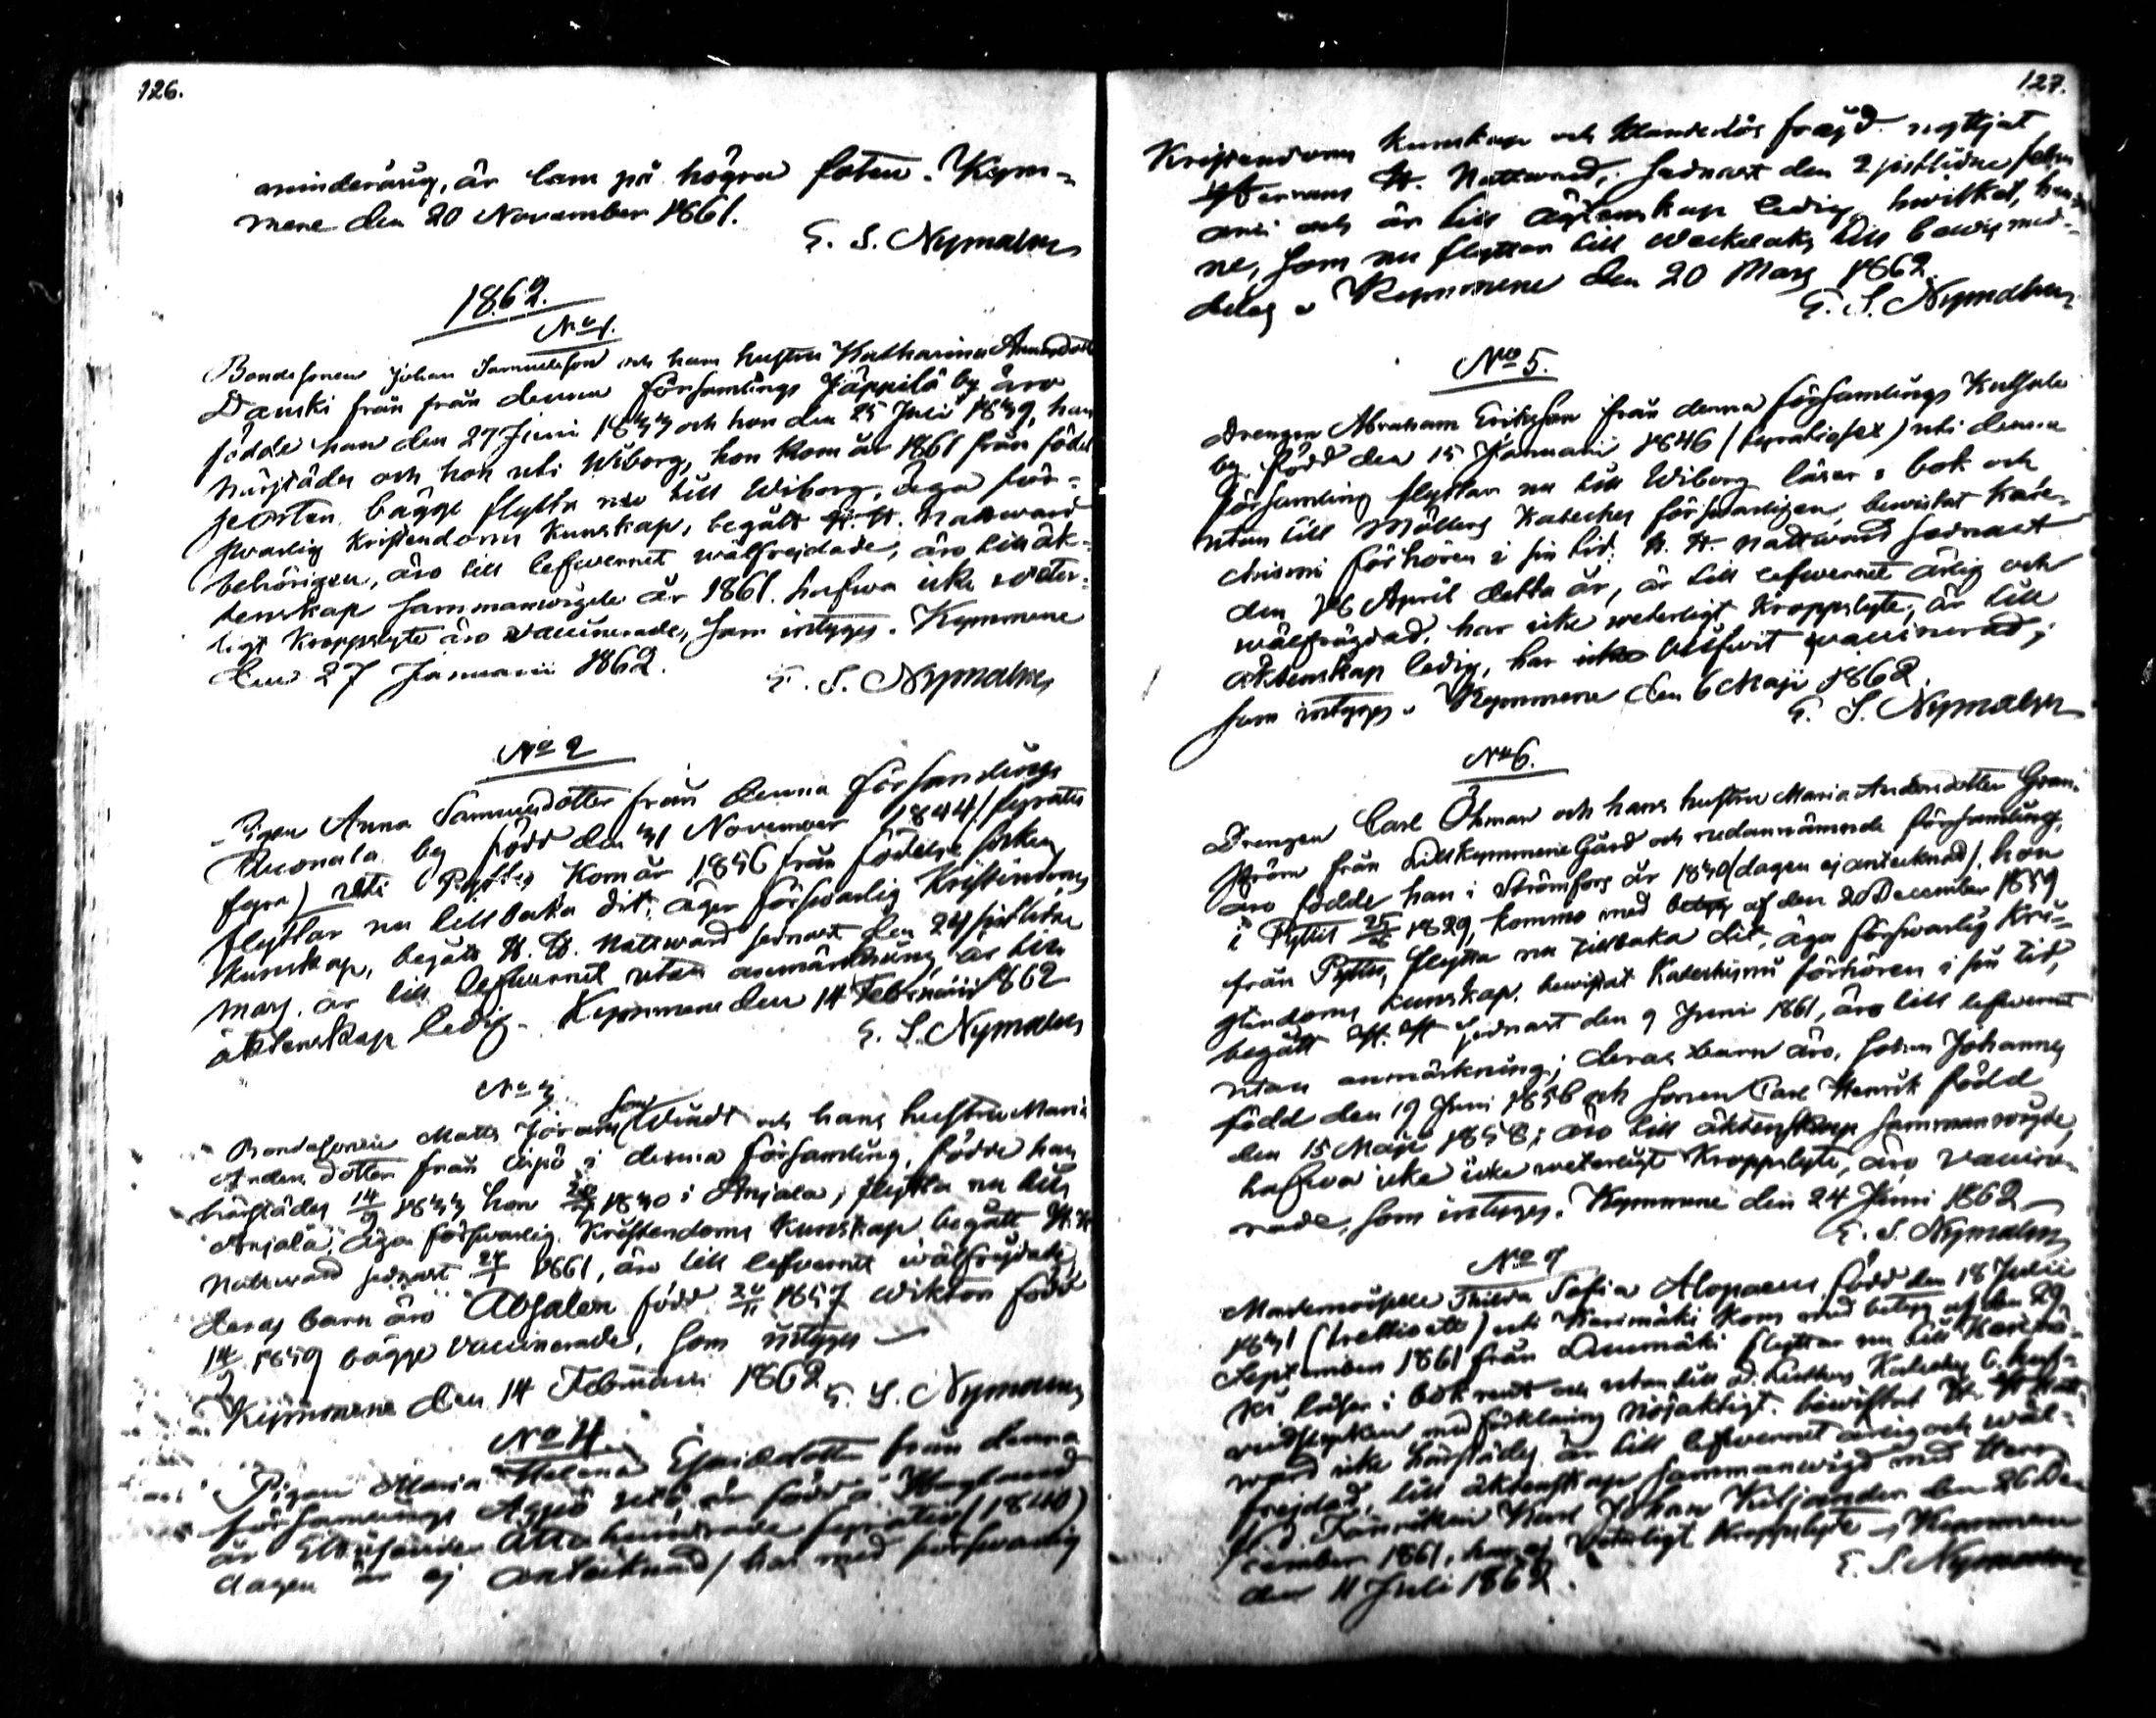 126.
minderårig, är lam på högra foten. Kym-
mene den 20 November 1861.
E. S. Nymalm
1862.
No 1.
Bondesonen Johan Samuelsson och hans hustru Katharina
Danski från från denna församlings Jäppilä by äro
födde han den 27 Juni 1833 och hon den 25 Juli 1839, han
härstädes och hon uti Wiborg, hon kom år 1861 från födel
seorten, bägge flytta nu till Wiborg, äga för-
svarlig Kristendoms Kunskap, begått H. H. Nattward
behörigen, äro till lefvernet wälfrejdade, äro till äk-
tenskap sammanwigde år 1861. hafwa icke weter-
ligt Kroppslyte äro vaccinerade, som intygas. Kymmene
den 27 Januarii 1862.
E. S. Nymalm
No 2
Pigan Anna Samuelsdotter från denna församlings
by född den 31 November 1844 (fyratio
fyra) uti Pyttis Kom år 1856 från födelse socken
flyttar nu tillbaka dit, äger försvarlig Kristendoms
kunskap, begått H. H. Nattward sednast den 24 sistlidne
Mars, är till lefvernet utan anmärkning, är till
äktenskap ledig. Kymmene den 14 Februarii 1862
E. S. Nymalm
No 3
Bondesonen Matts Jöransson Windt och hans hustru Maria
Andersdotter från i denna församling, födde han
härstädes 14/9 1833 hon 1830 i Anjala, flytta nu till
Anjala, äga försvarlig Kristendoms Kunskap begått H. H.
Nattward sednast 1861, äro till lefvernet wälfrejdade,
deras barn äro Absalon född 20/11 1857 Wiktor född
14/9 1859 bägge vaccinerade, som intygas
Kymmene den 14 Februarii 1862
E. S. Nymalm
No 4.
Pigan Maria Helena från denna
församlings by är född å Hogland
år Ettusende Åttahundrade fyratio (1840)
dagen är ej antecknad, har med försvarlig
127.
Kristendoms kunskap och klanderlös fräjd nyttjat
Herrans H. Nattward, sednast den 2 sistlidne
och är till äktenskap ledig, hwilket,
ne, som nu flyttar till Weckelaks till bewis med-
delas. Kymmene den 20 Mars 1862.
E. S. Nymalm
No 5.
Drengen Abraham Eriksson från denna församlings
by, född den 15 Januarii 1846 (fyratiosex) uti denna
församling flyttar nu till Wiborg läser i bok och
utan till Möllers Kateches försvarligen, bewistat Kate-
chismi förhören i sin tid. H. H. Nattward sednast
den 16 April detta år, är till lefvernet ärlig och
wälfrägdad. har icke weterligt Kroppslyte, är till
äktenskap ledig, har icke blifvit vaccinerad,
som intygas. Kymmene den 6 Maji 1862.
E. S. Nymalm
No 6.
Drengen Carl Öhman och hans hustru Maria Andersdotter Gran-
ström från Lillkymmene Gård och redannämnde församling,
äro födde han i Strömfors år 1830 (dagen ej antecknad), hon
i Pyttis 1829, kommo med betyg af den 20 December 1859
från Pyttis, flytta nu tillbaka dit, äga försvarlig Kri-
stendoms kunskap, bewistat Katechismi förhören i sin tid,
begått H. H. sednast den 9 Juni 1861, äro till lefvernet
utan anmärkning; deras barn äro, sonen Johannes
född den 19 Juni 1856 och sonen Carl Henrik född
den 15 Maji 1858; äro till äktenskap sammanwigde,
hafwa icke icke weterligt Kroppslyte, äro vaccine-
rade, som intygas. Kymmene den 24 Juni 1862
E. S. Nymalm
No 7
Mademoiselle Thilda Sofia Alopaeus, född den 18 Julii
1831 (trettioett) uti Kerimäki kom med betyg af den 29
September 1861 från Luumäki flyttar nu till Kerimä-
ki läser i bok rent och utan till D. Luthers Kateches 6. huf-
vudstycken med förklaring nöjaktigt. bewistat H. H. Natt-
ward icke härstädes är till lefvernet ärlig och wäl-
frejdad, till äktenskap sammanwigd med Herr
Karl Johan Kiljander den 26 De-
cember 1861, har ej weterligt Kroppslyte, Kymmene
den 11 Juli 1862.
E. S. Nymalm